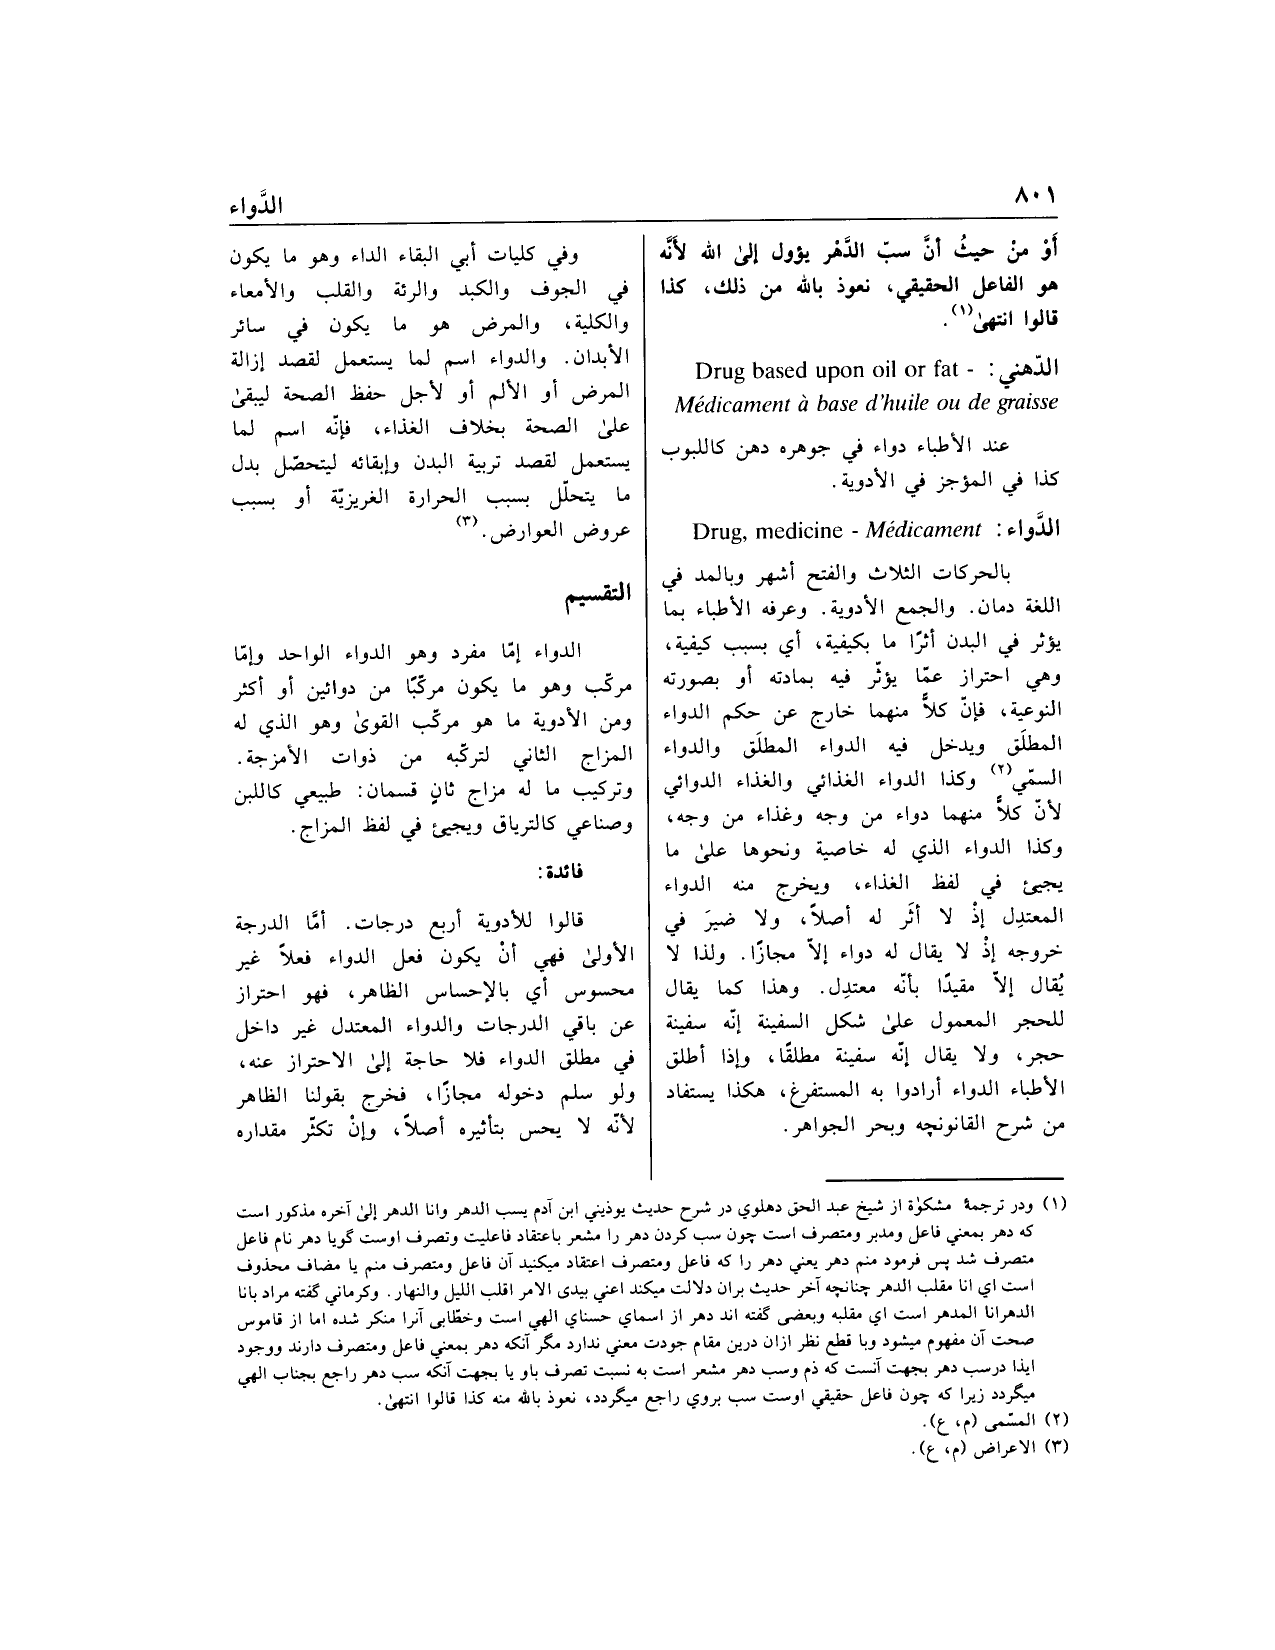 ٨٠١
الدَّواء
أَوْ منْ حيثُ أنَّ سبّ الدَّهْر يؤول إلىٰ الله لأَنَّه
هو الفاعل الحقيقي، نعوذ بالله من ذلك، كذا
قالوا انتهىٰ(١).
الدّهني: Drug based upon oil or fat -
Médicament à base d'huile ou de graisse
عند الأطباء دواء في جوهره دهن كاللبوب
كذا في المؤجز في الأدوية.
الدَّواء: Drug, medicine - Médicament
بالحركات الثلاث والفتح أشهر وبالمد في
اللغة دمان. والجمع الأدوية. وعرفه الأطباء بما
يؤثر في البدن أثرًا ما بكيفية، أي بسبب كيفية،
وهي احتراز عمّا يؤثّر فيه بمادته أو بصورته
النوعية، فإنّ كلاًّ منهما خارج عن حكم الدواء
المطلَق ويدخل فيه الدواء المطلَق والدواء
السمّي(٢) وكذا الدواء الغذائي والغذاء الدوائي
لأنّ كلاًّ منهما دواء من وجه وغذاء من وجه،
وكذا الدواء الذي له خاصية ونحوها علىٰ ما
يجيئ في لفظ الغذاء، ويخرج منه الدواء
المعتدِل إذْ لا أثَر له أصلاً، ولا ضيرَ في
خروجه إذْ لا يقال له دواء إلاّ مجازًا. ولذا لا
يُقال إلاّ مقيدًا بأنّه معتدِل. وهذا كما يقال
للحجر المعمول علىٰ شكل السفينة إنّه سفينة
حجر، ولا يقال إنّه سفينة مطلقًا، وإذا أطلق
الأطباء الدواء أرادوا به المستفرغ، هكذا يستفاد
من شرح القانونچه وبحر الجواهر.
وفي كليات أبي البقاء الداء وهو ما يكون
في الجوف والكبد والرئة والقلب والأمعاء
والكلية، والمرض هو ما يكون في سائر
الأبدان. والدواء اسم لما يستعمل لقصد إزالة
المرض أو الألم أو لأجل حفظ الصحة ليبقىٰ
علىٰ الصحة بخلاف الغذاء، فإنّه اسم لما
يستعمل لقصد تربية البدن وإبقائه ليتحصّل بدل
ما يتحلّل بسبب الحرارة الغريزيّة أو بسبب
عروض العوارض.(٣)
التقسيم
الدواء إمّا مفرد وهو الدواء الواحد وإمّا
مركّب وهو ما يكون مركّبًا من دوائين أو أكثر
ومن الأدوية ما هو مركّب القوىٰ وهو الذي له
المزاج الثاني لتركّبه من ذوات الأمزجة.
وتركيب ما له مزاج ثانٍ قسمان: طبيعي كاللبن
وصناعي كالترياق ويجيئ في لفظ المزاج.
فائدة:
قالوا للأدوية أربع درجات. أمَّا الدرجة
الأولىٰ فهي أنْ يكون فعل الدواء فعلاً غير
محسوس أي بالإحساس الظاهر، فهو احتراز
عن باقي الدرجات والدواء المعتدل غير داخل
في مطلق الدواء فلا حاجة إلىٰ الاحتراز عنه،
ولو سلم دخوله مجازًا، فخرج بقولنا الظاهر
لأنّه لا يحس بتأثيره أصلاً، وإنْ تكثّر مقداره
(١) ودر ترجمهٔ مشكوٰة از شيخ عبد الحق دهلوي در شرح حديث يوذيني ابن آدم يسب الدهر وانا الدهر إلىٰ آخره مذكور است
كه دهر بمعني فاعل ومدبر ومتصرف است چون سب كردن دهر را مشعر باعتقاد فاعليت وتصرف اوست گويا دهر نام فاعل
متصرف شد پس فرمود منم دهر يعني دهر را كه فاعل ومتصرف اعتقاد ميكنيد آن فاعل ومتصرف منم يا مضاف محذوف
است اي انا مقلب الدهر چنانچه آخر حديث بران دلالت ميكند اعني بيدى الامر اقلب الليل والنهار. وكرماني گفته مراد بانا
الدهرانا المدهر است اي مقلبه وبعضى گفته اند دهر از اسماي حسناي الهي است وخطّابى آنرا منكر شده اما از قاموس
صحت آن مفهوم ميشود وبا قطع نظر ازان درين مقام جودت معني ندارد مگر آنكه دهر بمعني فاعل ومتصرف دارند ووجود
ايذا درسب دهر بجهت آنست كه ذم وسب دهر مشعر است به نسبت تصرف باو يا بجهت آنكه سب دهر راجع بجناب الهي
ميگردد زيرا كه چون فاعل حقيقي اوست سب بروي راجع ميگردد، نعوذ بالله منه كذا قالوا انتهىٰ.
(٢) المسّمى (م، ع).
(٣) الاعراض (م، ع).